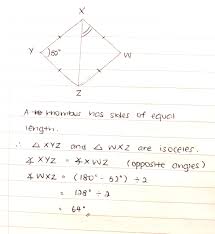 X
Y
52°
W
Z
A rhombus has sides of equal
length.
∴ △ XYZ and △ WXZ are isoceles.
∡ XYZ = ∡ XWZ (opposite angles)
∡ WXZ = (180° - 52°) ÷ 2
= 128° ÷ 2
= 64°